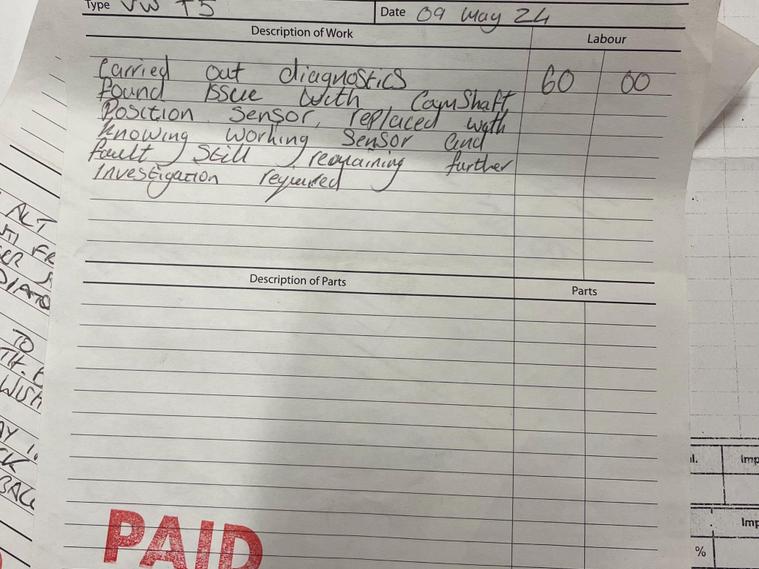 Type VW T5 Date 09 May 24
Description of Work Labour
Carried out diagnostics 60 00
found issue with CamShaft
Position sensor, replaced with
knowing working Sensor and
fault still remaining further
Investigation required
Description of Parts Parts
PAID
ALT
TO
TH. E
WISH
BACK
Imp
Imp
%